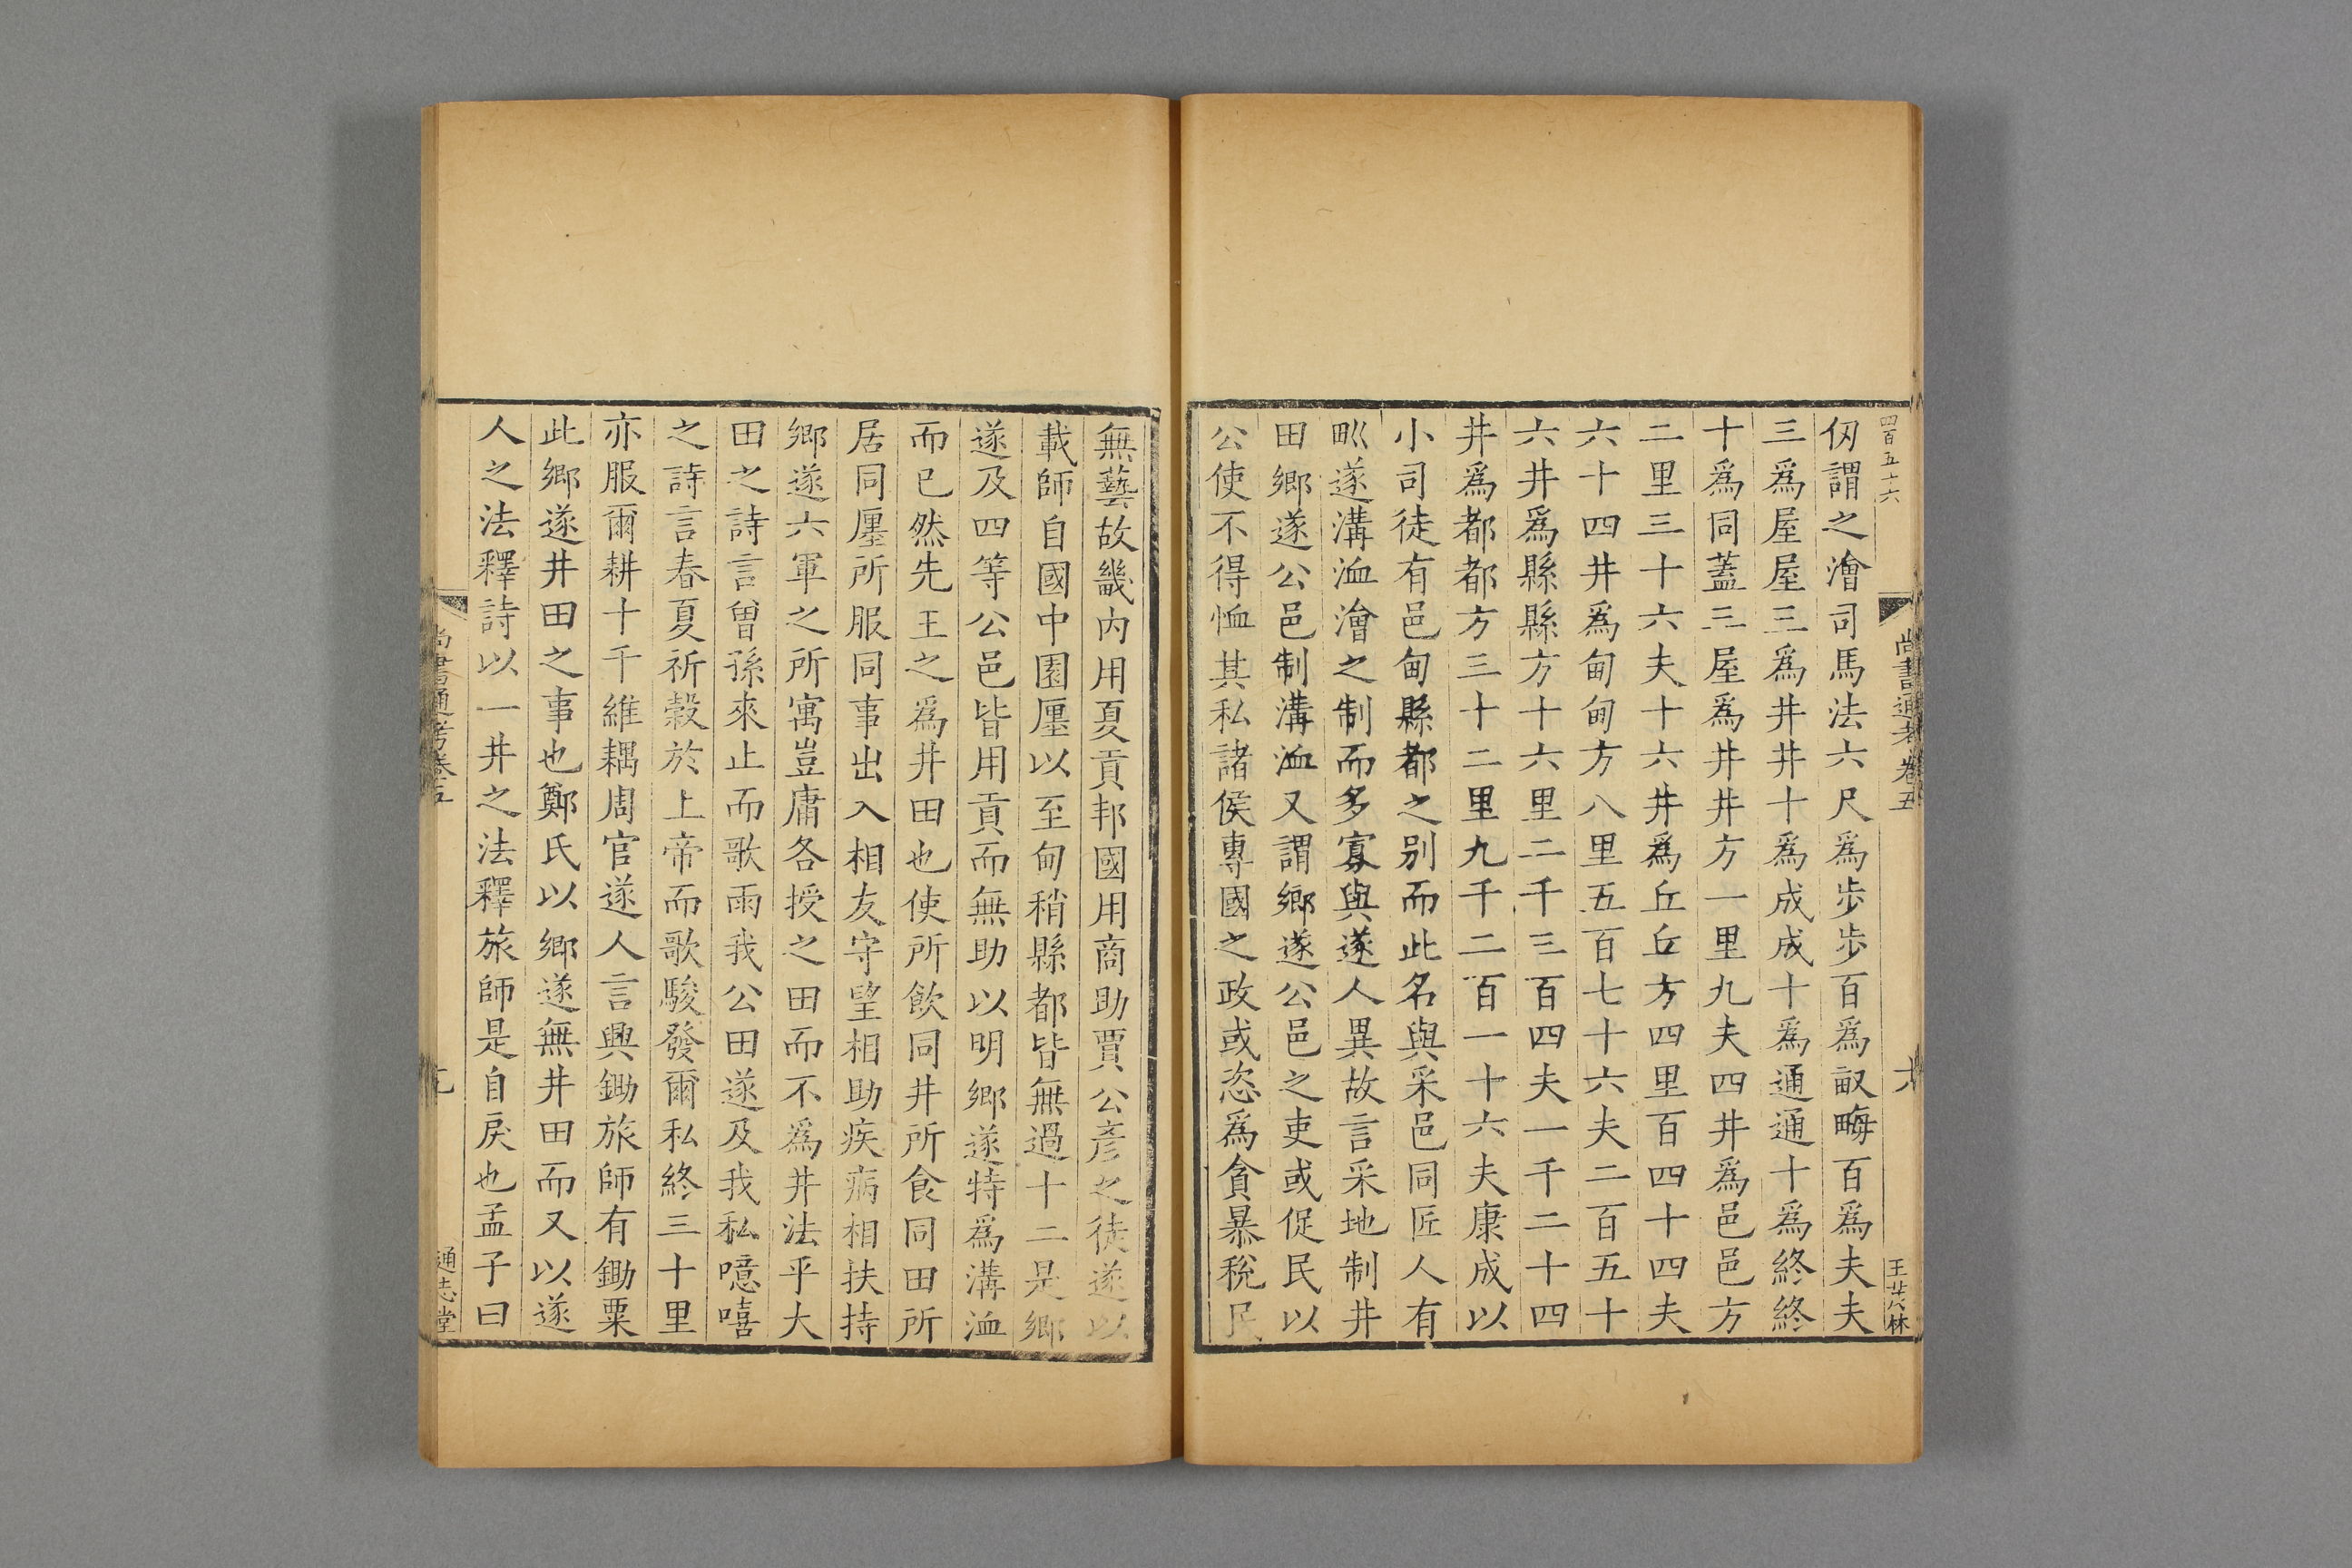 四百五十六
尚書通考卷五
六
王芝林
仞謂之澮司馬法六尺爲步步百爲畝畮百爲夫夫
三爲屋屋三爲井井十爲成成十爲通通十爲終終
十爲同蓋三屋爲井井方一里九夫四井爲邑邑方
二里三十六夫十六井爲丘丘方四里百四十四夫
六十四井爲甸甸方八里五百七十六夫二百五十
六井爲縣縣方十六里二千三百四夫一千二十四
井爲都都方三十二里九千二百一十六夫康成以
小司徒有邑甸縣都之别而此名與采邑同匠人有
𤰕遂溝洫澮之制而多寡與遂人異故言采地制井
田鄉遂公邑制溝洫又謂鄉遂公邑之吏或促民以
公使不得恤其私諸侯專國之政或恣爲貪暴稅民
無藝故畿内用夏貢邦國用商助賈公彥之徒遂以
載師自國中園廛以至甸稍縣都皆無過十二是鄉
遂及四等公邑皆用貢而無助以明鄉遂特爲溝洫
而已然先王之爲井田也使所飲同井所食同田所
居同廛所服同事出入相友守望相助疾病相扶持
鄉遂六軍之所寓豈庸各授之田而不爲井法乎大
田之詩言曽孫來止而歌雨我公田遂及我私噫嘻
之詩言春夏祈穀於上帝而歌駿發爾私終三十里
亦服爾耕十千維耦周官遂人言興鋤旅師有鋤粟
此鄉遂井田之事也鄭氏以鄉遂無井田而又以遂
人之法釋詩以一井之法釋旅師是自戾也孟子曰
尚書通考卷五
通志堂